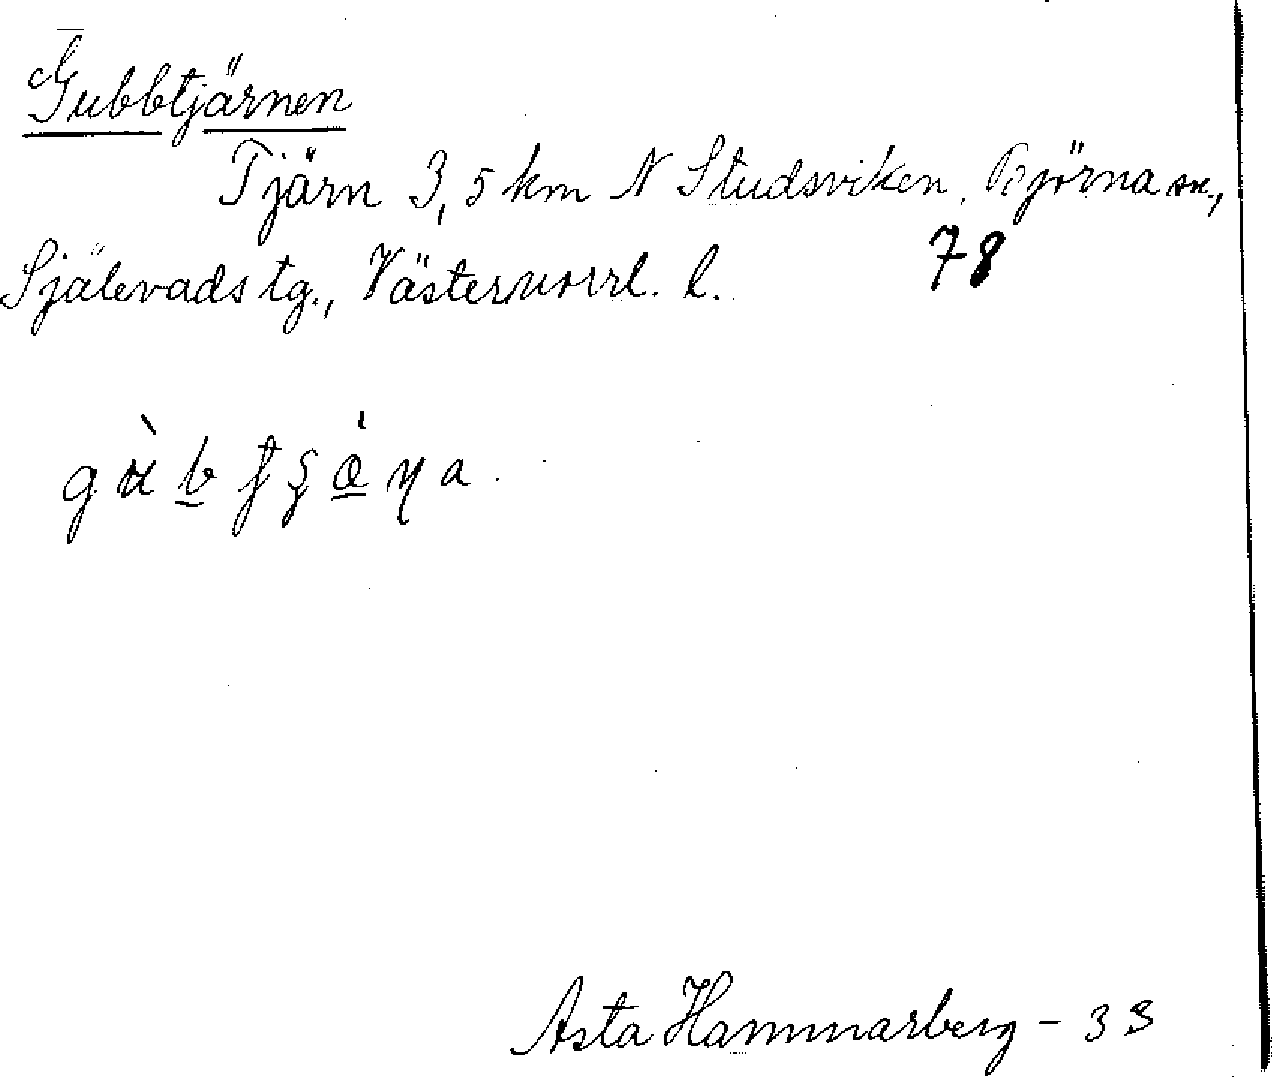 Gubbtjärnen
Tjärn 3,5 km N Studsviken, Björna sn.,
Själevads tg., Västernorrl. l.
78
Asta Hammarberg - 33